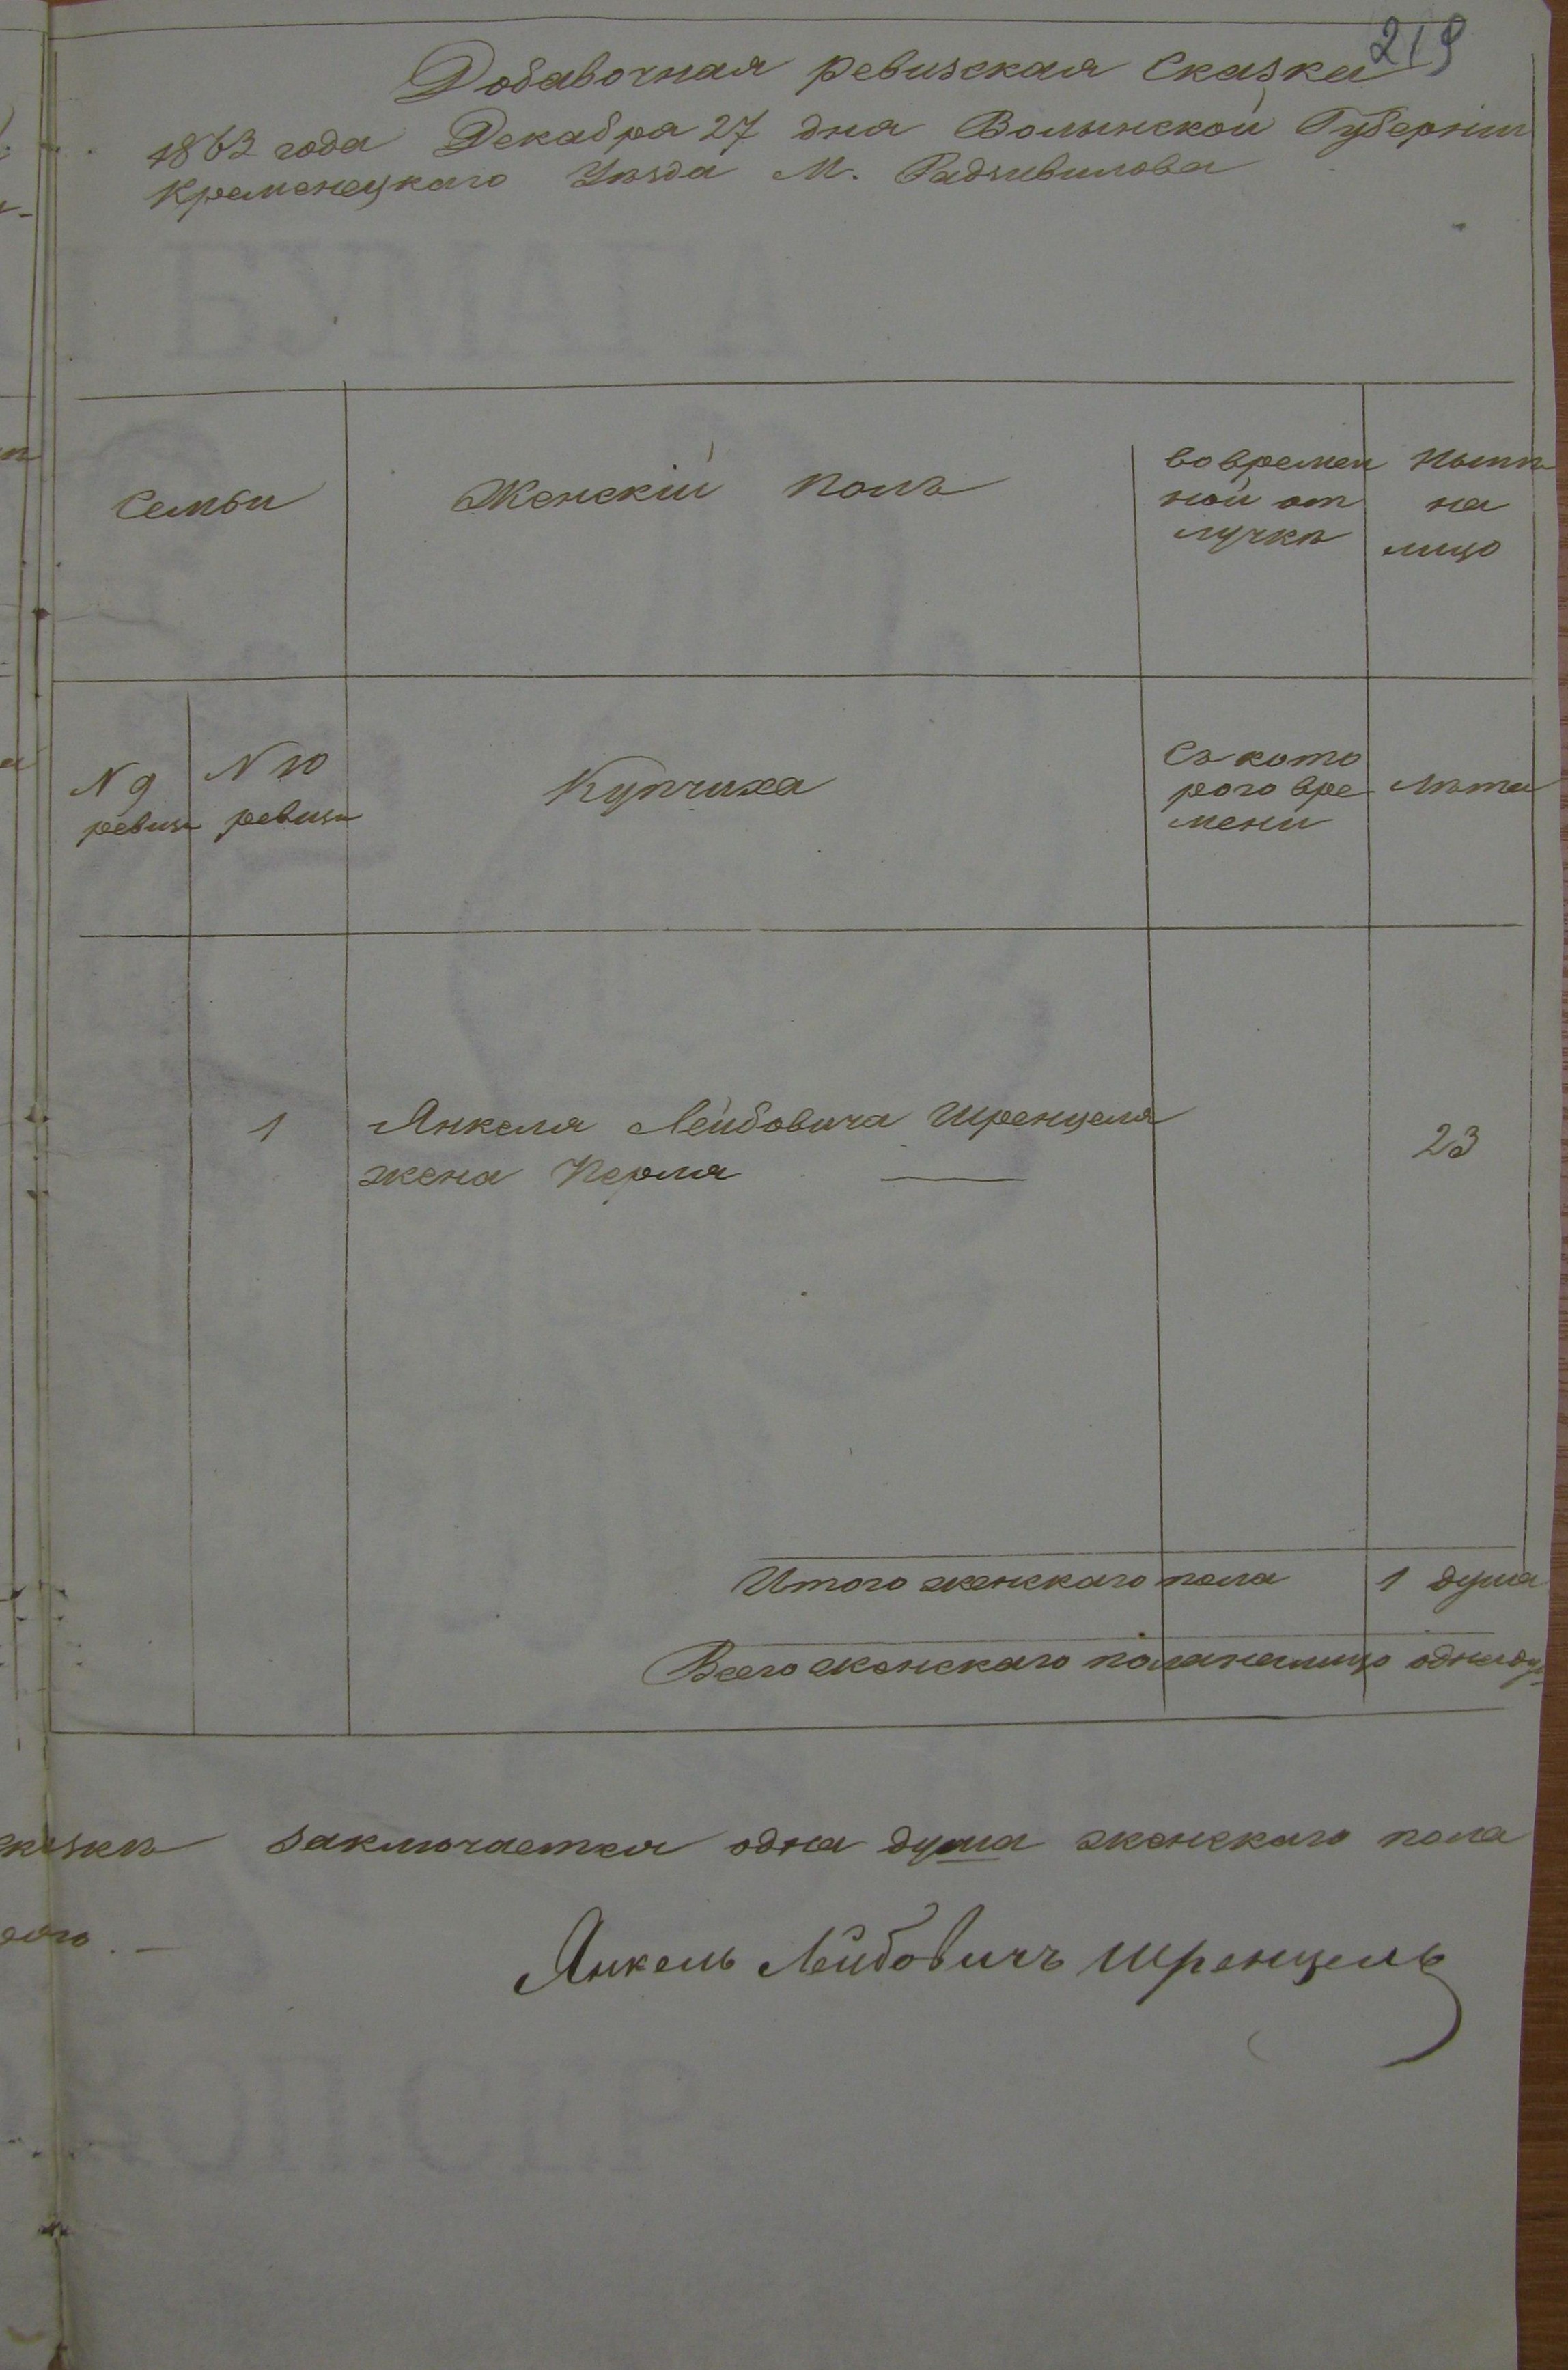 219
Добавочная ревизская Сказка
1863 года Декабра 27 дна Волынской Губерніи
Кременецкаго Уѣзда М. Радзивилова
Семьи
Женскій полъ
во времен
ной от
лучкѣ
Нынѣ
на
лицо
N 9
ревиз
N 10
ревиз
Купчиха
Съ кото
рого вре
мени
лѣта
1
Янкеля Лейбовича Шренцеля
жена Перля
23
Итого женскаго пола 1 душа
Всего женскаго пола налицо одна ду
заключается одна душа женскаго пола
Янкель Лейбовичъ Шренцель